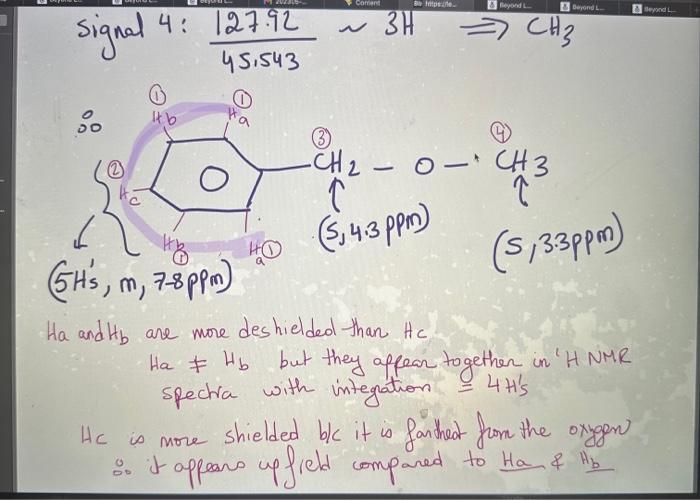 Signal 4: 127.92 / 45.543 ~ 3H ⇒ CH3
① ①
Hb Ha ③ ④
② CH2 - O - CH3
Hc
Hb Ha
① ①
(S, 4.3 ppm) (S, 3.3 ppm)
(5H's, m, 7-8 ppm)
Ha and Hb are more deshielded than Hc
Ha ≠ Hb but they appear together in 'H NMR
spectra with integration ≅ 4H's
Hc is more shielded b/c it is farthest from the oxygen
∴ it appears upfield compared to Ha & Hb